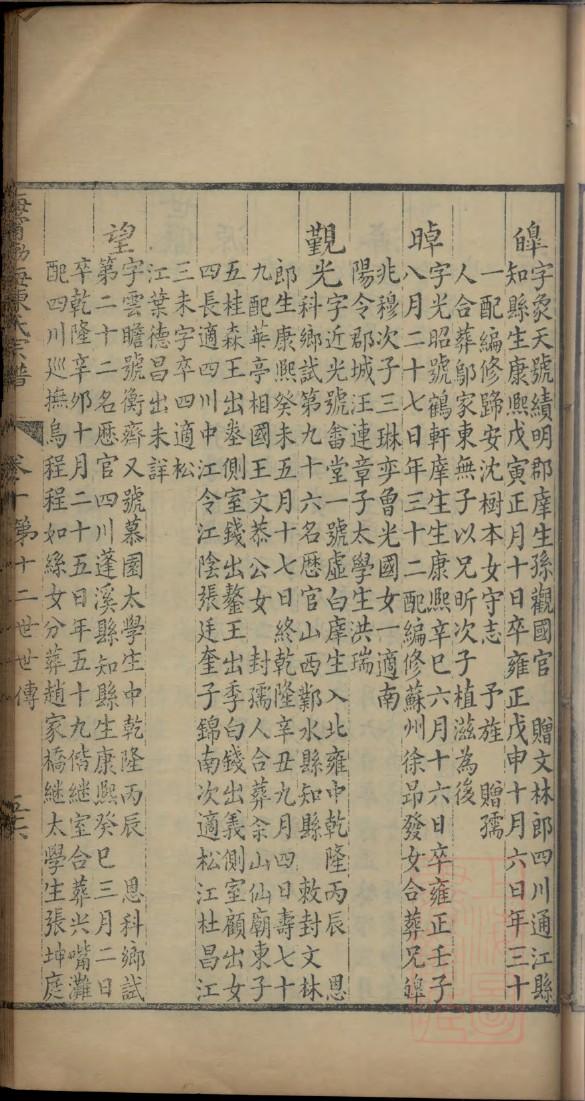 皥字象天號績明郡庠生孫觀國官　贈文林郎四川通江縣
知縣生康熙戊寅正月十日卒雍正戊申十月六日年三十
一配編修歸安沈樹本女守志　予旌　贈孺
人合葬鄔家東無子以兄昕次子植滋為後
晫字光昭號鶴軒庠生生康熙辛巳六月十六日卒雍正壬子
八月二十七日年三十二配編修蘇州徐昂發女合葬兄皥
兆穆次子三琳奕曾光國女一適南
陽令郡城汪連章子太學生洪瑞
觀光字近光號畬堂一號虛白庠生入北雍中乾隆丙辰　恩
科鄉試第九十六名歷官山西鄴水縣知縣　敕封文林
郎生康熙癸未五月十七日終乾隆辛丑九月四日壽七十
九配華亭相國王文恭公女　封孺人合葬佘山仙廟東子
五桂森王出埊側室錢出鏊王出季白錢出義側室顧出女
四長適四川中江令江陰張廷奎子錦南次適松江杜昌江
三未字卒四適松
江葉德昌出未詳
望字雲瞻號衡齊又號慕園太學生中乾隆丙辰　恩科鄉試
第二十二名歷官四川蓬溪縣知縣生康熙癸巳三月二日
卒乾隆辛卯十月二十五日年五十九偕繼室合葬興嘴灘
配四川巡撫烏程程如絲女分葬趙家橋繼太學生張坤庭
海寧渤海陳氏宗譜　卷十　第十二世世傳　五六